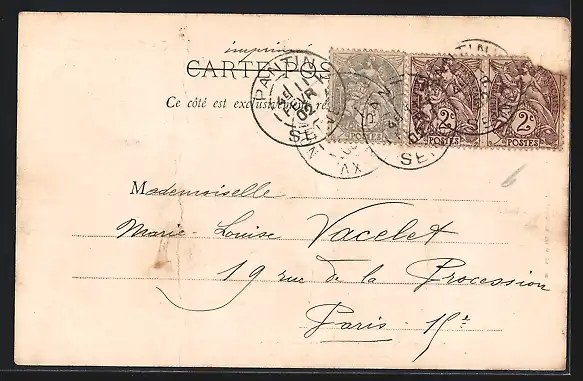 imprimé
CARTE POS
Ce côté est exclusivement ré
PANTIN
11
FEVR
02
SEI
2c 2c
POSTES POSTES POSTES
Mademoiselle
Marie-Louise Vacelet
19 rue de la Procession
Paris 15e
6